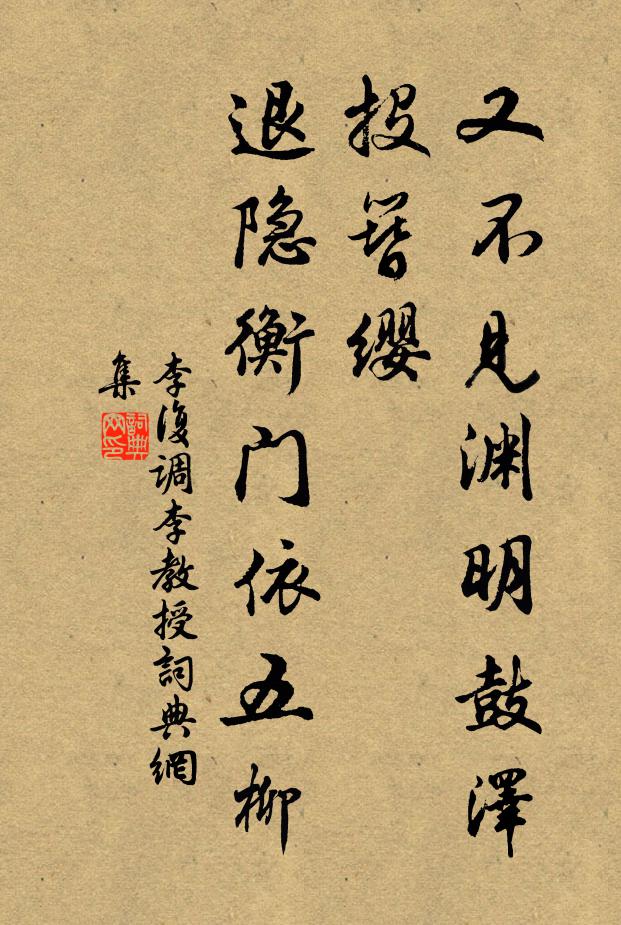 又不见渊明鼓泽
投簪缨
退隐衡门依五柳
李復调李教授詞典網
集
詞典
网印